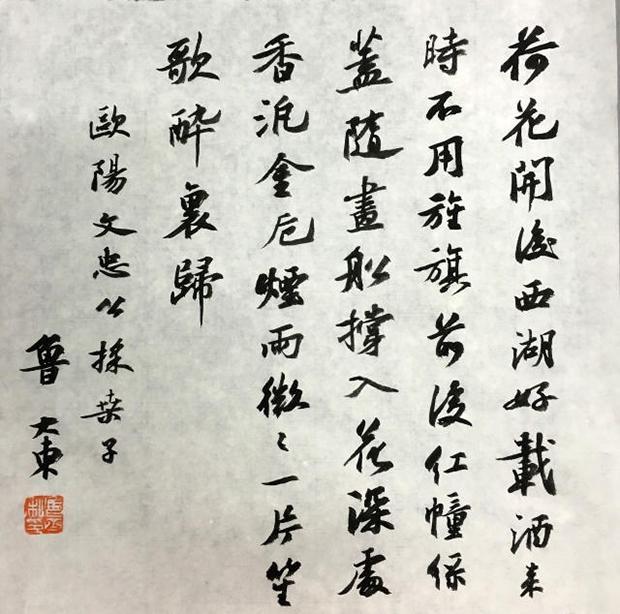 荷花開後西湖好載酒来
時不用旌旗前後紅幢綠
蓋隨畫船撐入花深處
香泛金卮煙雨微〻一片笙
歌醉裏歸
歐陽文忠公採桑子
魯大東